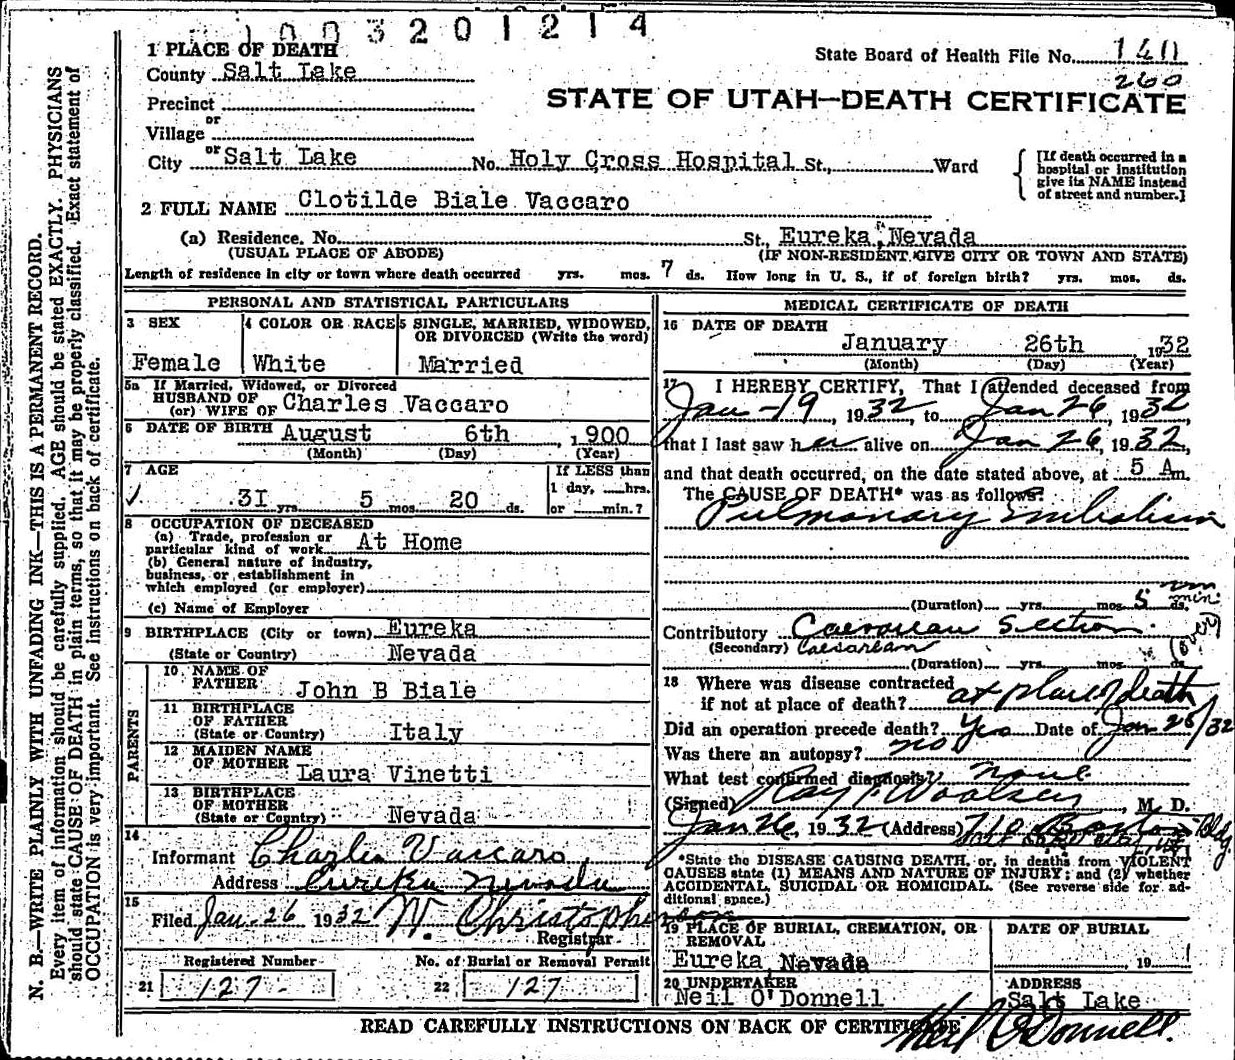 1003201214
State Board of Health File No. 140
260
STATE OF UTAH—DEATH CERTIFICATE
1 PLACE OF DEATH
County Salt Lake
Precinct
or
Village
or
City Salt Lake No. Holy Cross Hospital St., Ward
[If death occurred in a
hospital or institution
give its NAME instead
of street and number.]
2 FULL NAME Clotilde Biale Vaccaro
(a) Residence. No. St., Eureka, Nevada
(USUAL PLACE OF ABODE) (IF NON-RESIDENT, GIVE CITY OR TOWN AND STATE)
Length of residence in city or town where death occurred yrs. mos. 7 ds. How long in U. S., if of foreign birth? yrs. mos. ds.
PERSONAL AND STATISTICAL PARTICULARS
3 SEX
Female
4 COLOR OR RACE
White
5 SINGLE, MARRIED, WIDOWED,
OR DIVORCED (Write the word)
Married
5a If Married, Widowed, or Divorced
HUSBAND OF
(or) WIFE OF Charles Vaccaro
6 DATE OF BIRTH August 6th, 1900
(Month) (Day) (Year)
7 AGE
31 yrs 5 mos. 20 ds.
If LESS than
1 day, hrs.
or min.?
8 OCCUPATION OF DECEASED
(a) Trade, profession or
particular kind of work At Home
(b) General nature of industry,
business, or establishment in
which employed (or employer)
(c) Name of Employer
9 BIRTHPLACE (City or town) Eureka
(State or Country) Nevada
PARENTS
10 NAME OF
FATHER John B Biale
11 BIRTHPLACE
OF FATHER
(State or Country) Italy
12 MAIDEN NAME
OF MOTHER Laura Vinetti
13 BIRTHPLACE
OF MOTHER
(State or Country) Nevada
14
Informant Charles Vaccaro
Address Eureka Nevada
15
Filed Jan-26 1932 W. Christopherson
Registrar
Registered Number
21 127
No. of Burial or Removal Permit
22 127
MEDICAL CERTIFICATE OF DEATH
16 DATE OF DEATH
January 26th 1932
(Month) (Day) (Year)
17 I HEREBY CERTIFY, That I attended deceased from
Jan-19, 1932, to Jan 26, 1932
that I last saw her alive on Jan 26, 1932,
and that death occurred, on the date stated above, at 5 A m.
The CAUSE OF DEATH* was as follows:
Pulmonary Embolism
(Duration) yrs. mos. 5 ds. min.
Contributory Caesarian Section (over)
(Secondary) Caesarean
(Duration) yrs. mos. ds.
18 Where was disease contracted
if not at place of death? at place of death
Did an operation precede death? Yes Date of Jan 25/32
Was there an autopsy? no
What test confirmed diagnosis? none
(Signed) Ray T. Woolsey, M. D.
Jan 26, 1932 (Address) 710 Boston Bldg.
*State the DISEASE CAUSING DEATH, or, in deaths from VIOLENT
CAUSES state (1) MEANS AND NATURE OF INJURY; and (2) whether
ACCIDENTAL, SUICIDAL OR HOMICIDAL. (See reverse side for ad-
ditional space.)
19 PLACE OF BURIAL, CREMATION, OR
REMOVAL
Eureka, Nevada
DATE OF BURIAL
, 19
20 UNDERTAKER
Neil O'Donnell
ADDRESS
Salt Lake
Neil O'Donnell.
READ CAREFULLY INSTRUCTIONS ON BACK OF CERTIFICATE
N. B.—WRITE PLAINLY WITH UNFADING INK—THIS IS A PERMANENT RECORD.
Every item of information should be carefully supplied. AGE should be stated EXACTLY. PHYSICIANS
should state CAUSE OF DEATH in plain terms, so that it may be properly classified. Exact statement of
OCCUPATION is very important. See instructions on back of certificate.